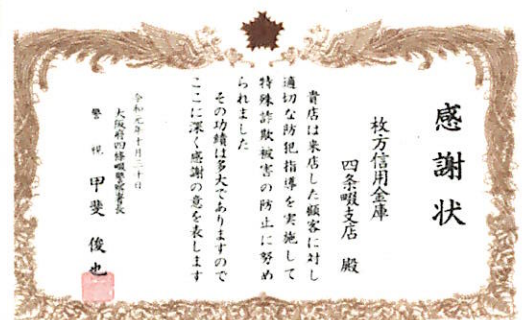 感謝状
枚方信用金庫
四条畷支店 殿
貴店は来店した顧客に対し
適切な防犯指導を実施して
特殊詐欺被害の防止に努め
られました
その功績は多大でありますので
ここに深く感謝の意を表します
令和元年十月三十日
大阪府四條畷警察署長
警視 甲斐 俊也